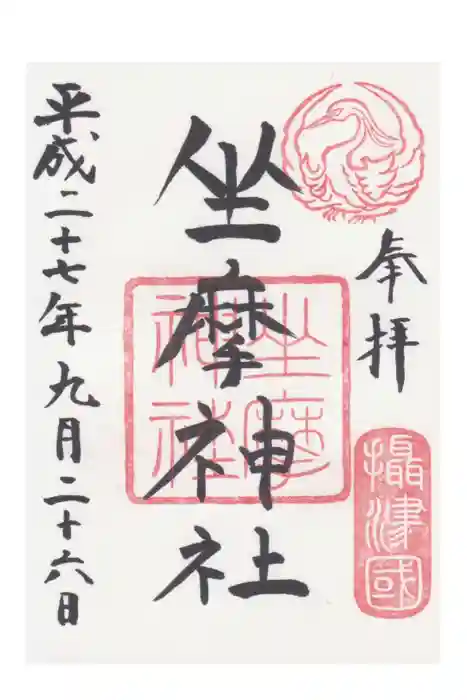 奉拝
攝津國
坐摩神社
坐摩
神社
平成二十七年九月二十六日